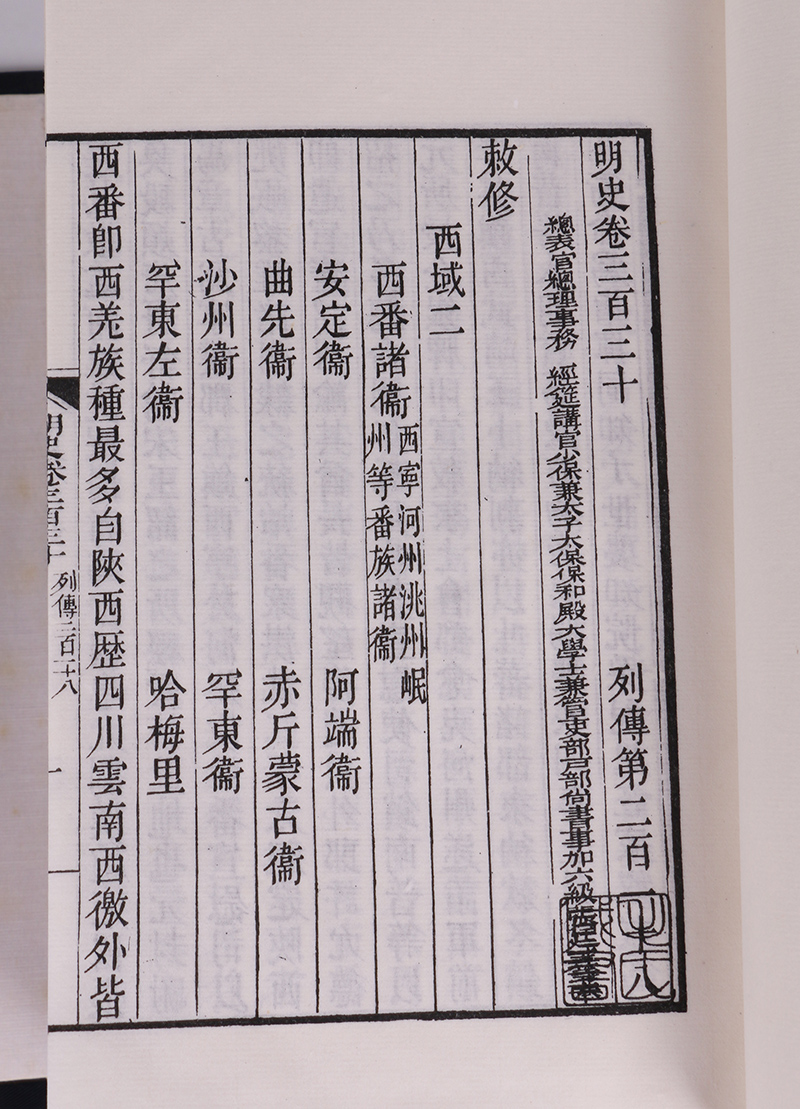 明史卷三百三十 列傳第二百一十八
總裁官總理事務 經筵講官少保兼太子太保保和殿大學士兼管吏部戶部尚書事加六級張廷玉等奉
敕修
西域二
西番諸衞 西寧河州洮州岷
州等番族諸衞
安定衞 阿端衞
曲先衞 赤斤蒙古衞
沙州衞 罕東衞
罕東左衞 哈梅里
西番卽西羌族種最多自陝西歷四川雲南西徼外皆
明史卷三百三十 列傳二百一十八 一